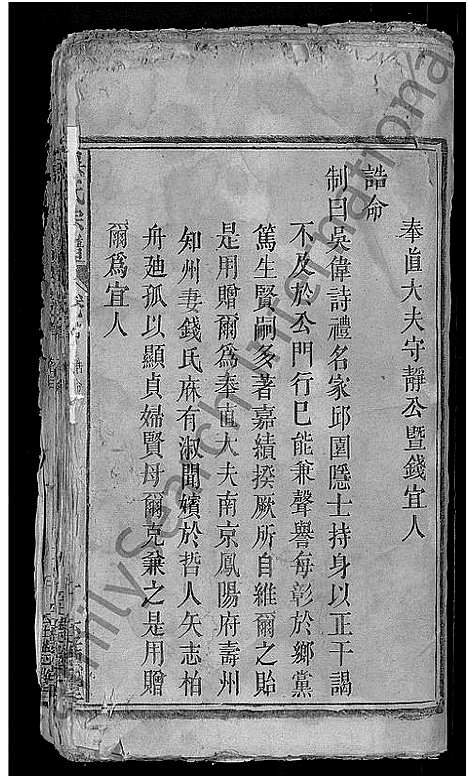 奉直大夫守靜公暨錢宜人
誥命
制曰吳偉詩禮名家邱園隱士持身以正干謁
不及於公門行巳能兼聲譽每彰於鄉黨
篤生賢嗣多著嘉績揆厥所自維爾之貽
是用贈爾爲奉直大夫南京鳳陽府壽州
知州妻錢氏庥有淑聞嬪於哲人矢志柏
舟廸孤以顯貞婦賢母爾克兼之是用贈
爾爲宜人
氏宗譜
誥命
FamilySearch International